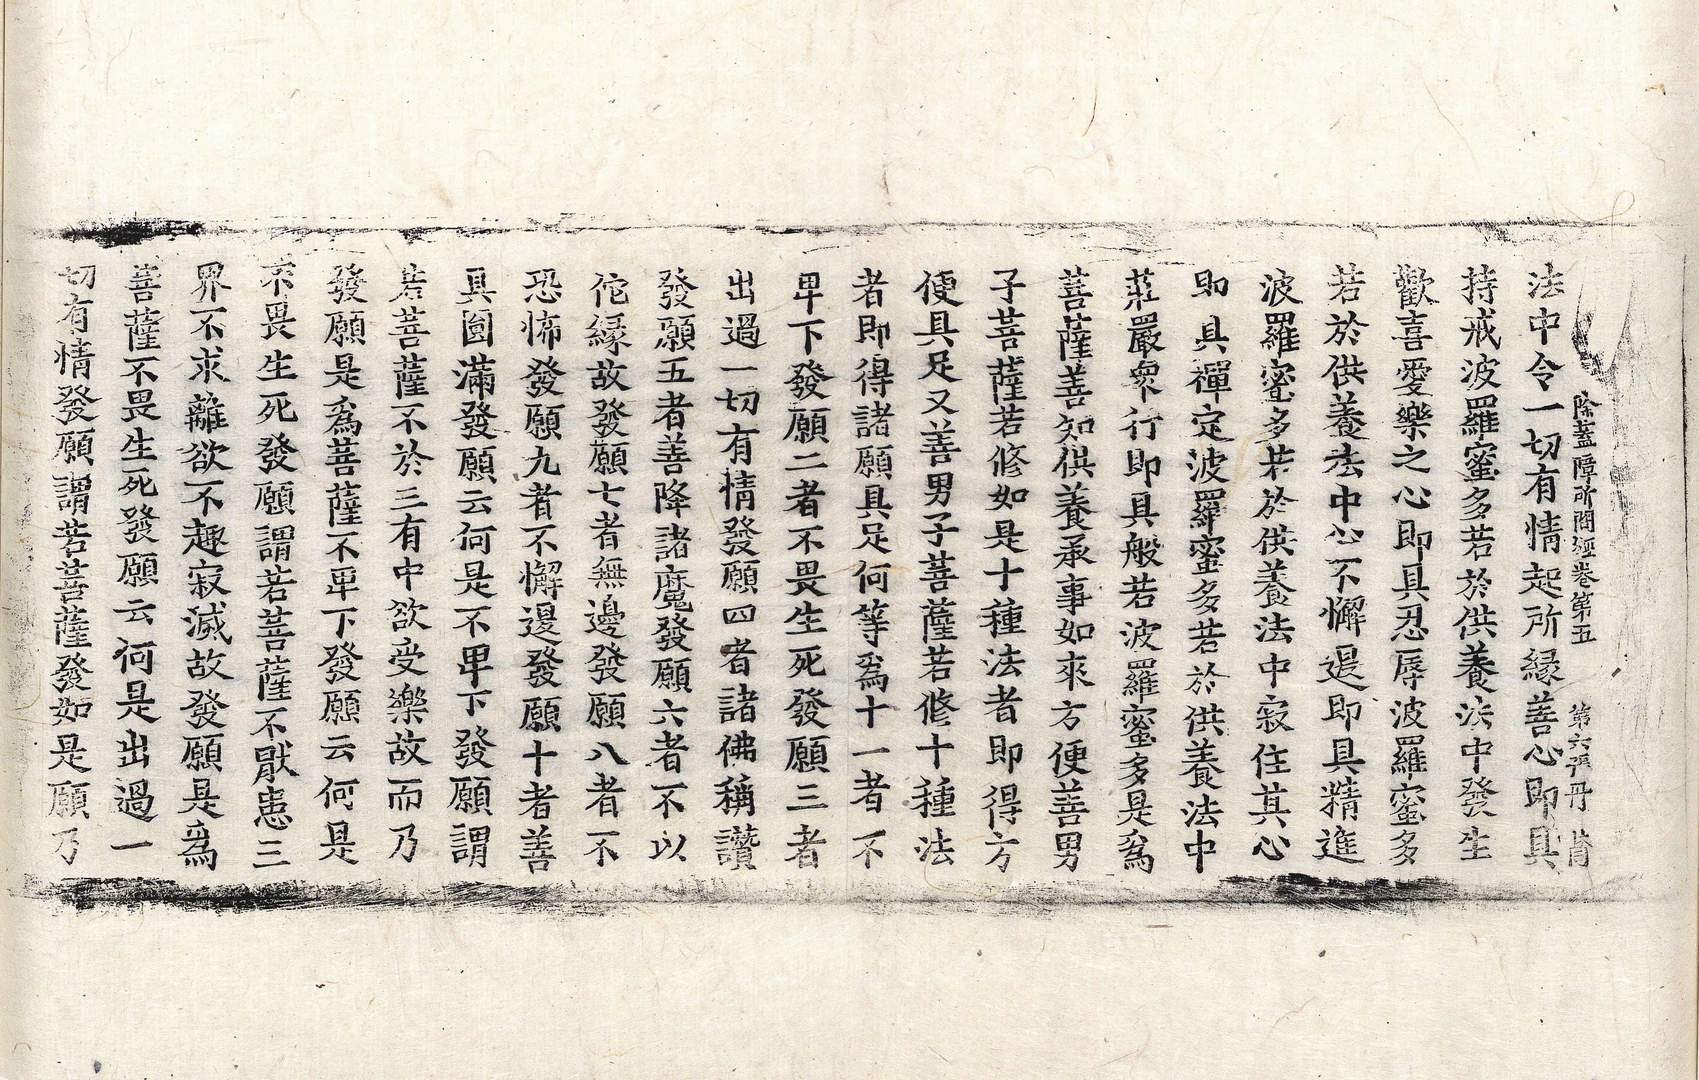 除蓋障所問經卷第五 第六張 丹
法中令一切有情起所縁善心即具
持戒波羅蜜多若於供養法中發生
歡喜愛樂之心即具忍辱波羅蜜多
若於供養法中心不懈退即具精進
波羅蜜多若於供養法中寂住其心
即具禪定波羅蜜多若於供養法中
莊嚴衆行即具般若波羅蜜多是爲
菩薩善知供養承事如來方便善男
子菩薩若修如是十種法者即得方
便具足又善男子菩薩若修十種法
者即得諸願具足何等爲十一者不
卑下發願二者不畏生死發願三者
出過一切有情發願四者諸佛稱讚
發願五者善降諸魔發願六者不以
佗縁故發願七者無邊發願八者不
恐怖發願九者不懈邊發願十者善
具圓滿發願云何是不卑下發願謂
若菩薩不於三有中欲受樂故而乃
發願是爲菩薩不卑下發願云何是
不畏生死發願謂若菩薩不猒患三
界不求離欲不趣寂滅故發願是爲
菩薩不畏生死發願云何是出過一
切有情發願謂若菩薩發如是願乃